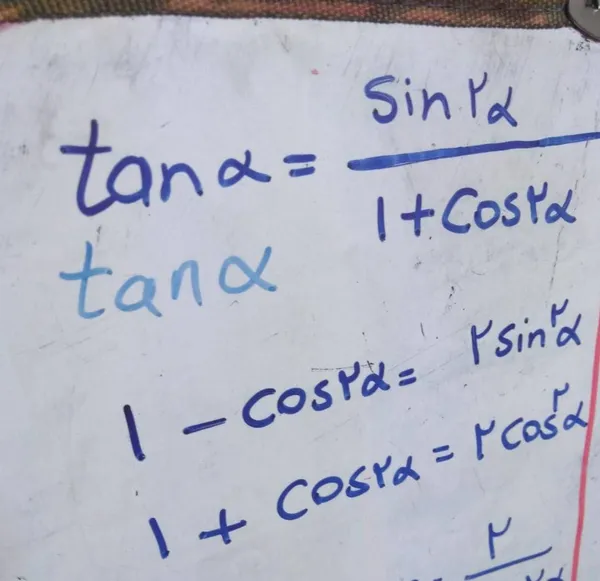 tanα = sin۲α / ۱+cos۲α
tanα
۱ - cos۲α = ۲sin^۲α
۱ + cos۲α = ۲cos^۲α
۲